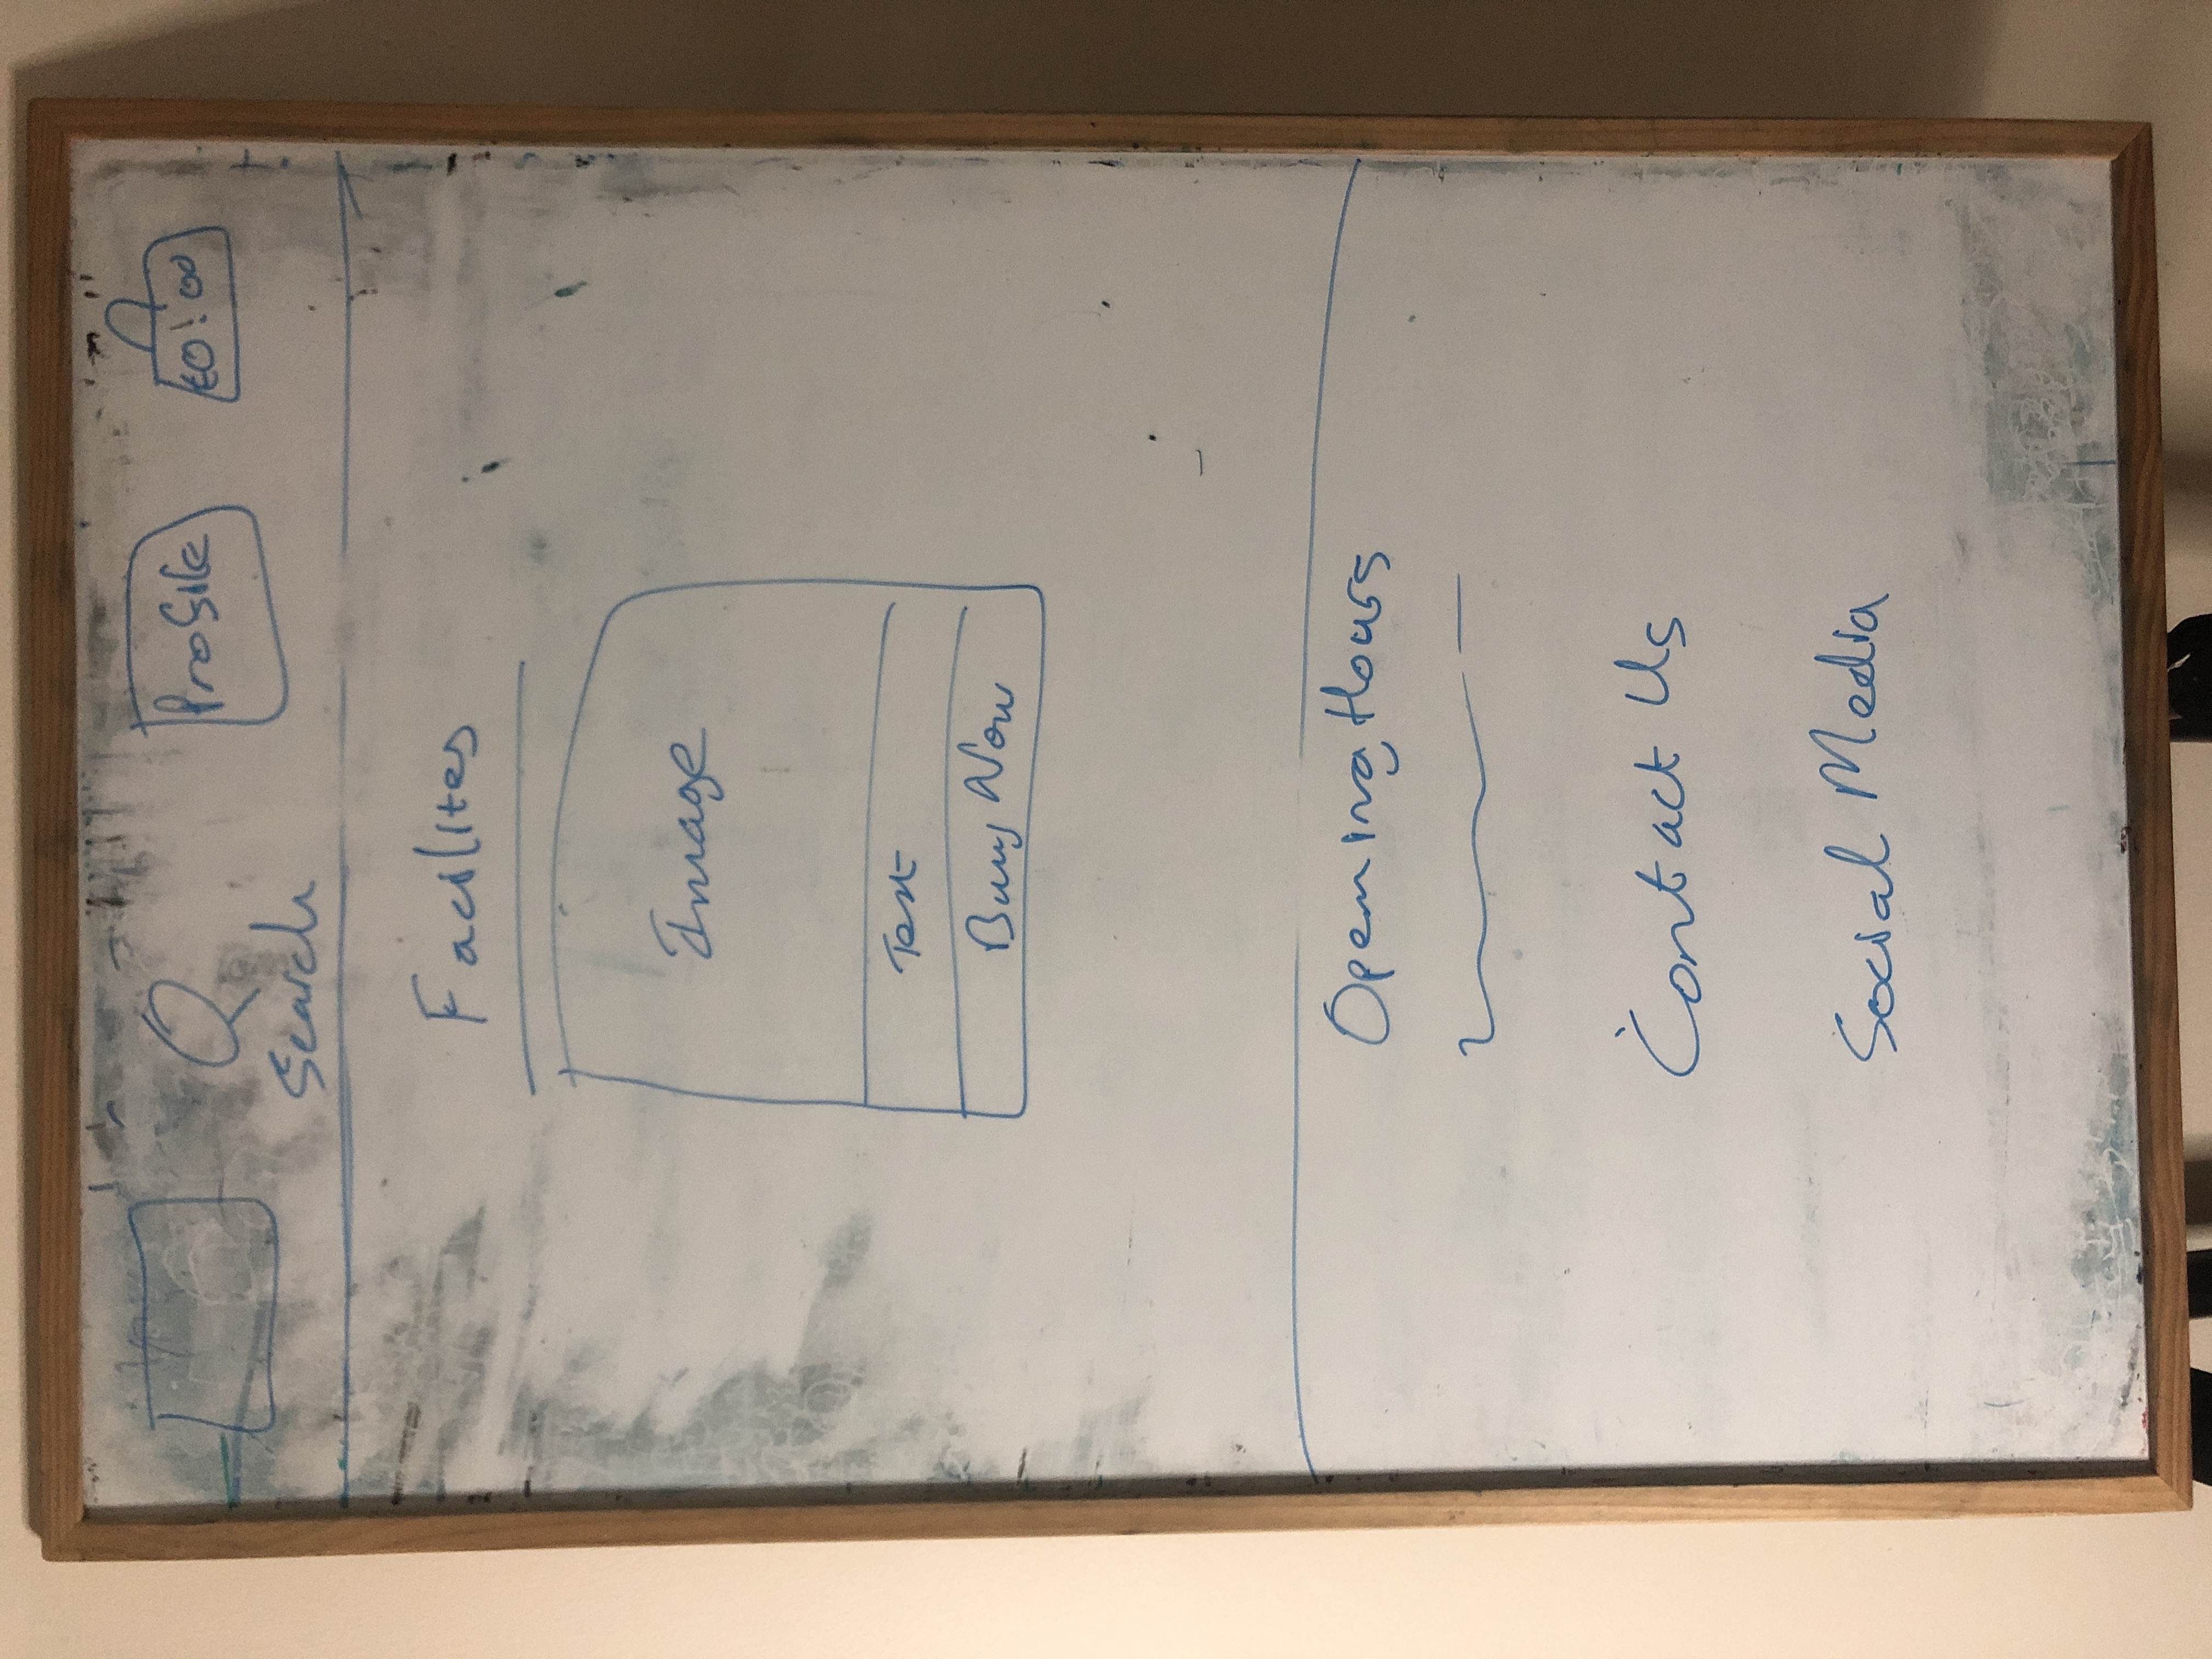 Profile
£0!00
Search
Facilites
Image
Text
Buy Now
Opening Hours
Contact Us
Social Media